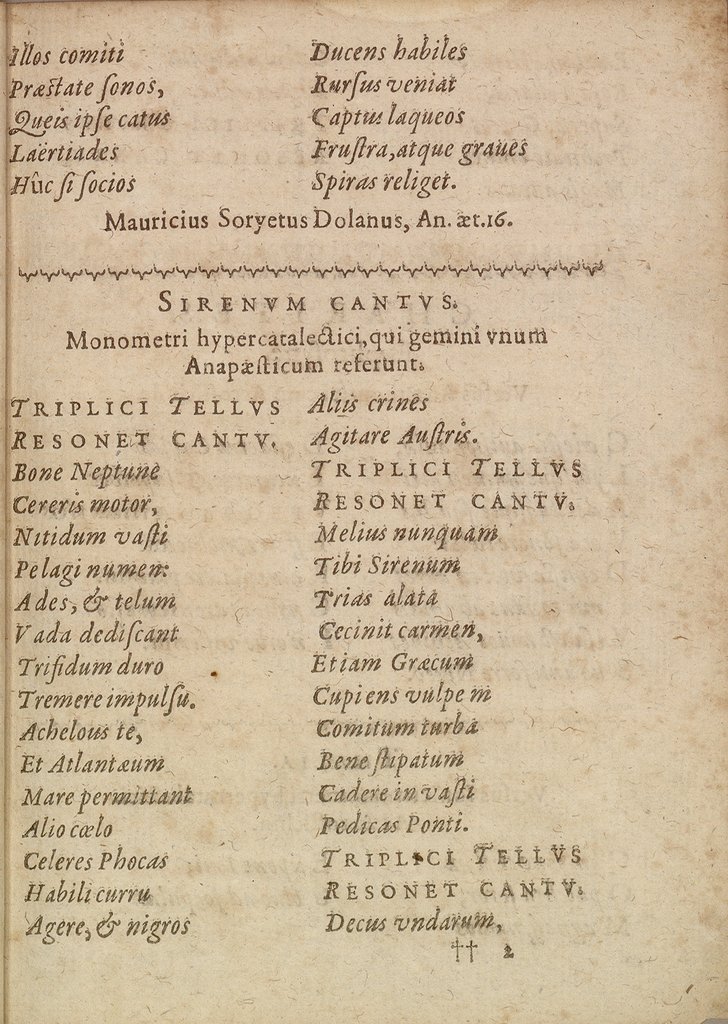 Illos comiti
Præstate ſonos,
Queis ipſe catus
Laërtiades
Hûc ſi ſocios
Ducens habiles
Rurſus veniat
Captus laqueos
Fruſtra, atque graues
Spiras religet.
Mauricius Soryetus Dolanus, An. æt. 16.
SIRENVM CANTVS.
Monometri hypercatalectici, qui gemini vnum
Anapæſticum referunt.
TRIPLICI TELLVS
RESONET CANTV.
Bone Neptune
Cereris motor,
Nitidum vaſti
Pelagi numen:
Ades, & telum
Vada dediſcant
Trifidum duro
Tremere impulſu.
Achelous te,
Et Atlantæum
Mare permittant
Alio cœlo
Celeres Phocas
Habili curru
Agere, & nigros
Aliis crines
Agitare Auſtris.
TRIPLICI TELLVS
RESONET CANTV.
Melius nunquam
Tibi Sirenum
Trias alata
Cecinit carmen,
Etiam Græcum
Cupiens vulpem
Comitum turbâ
Bene ſtipatum
Cadere in vaſti
Pedicas Ponti.
TRIPLICI TELLVS
RESONET CANTV.
Decus vndarum,
†† 2